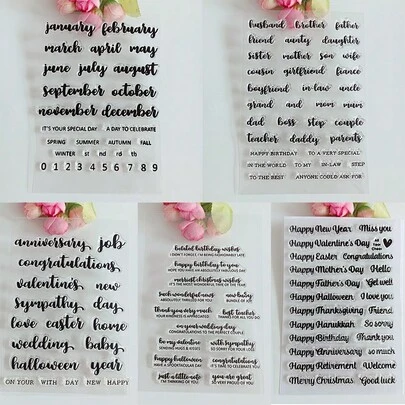 january february
march april may
june july august
september october
november december
IT'S YOUR SPECIAL DAY A DAY TO CELEBRATE
SPRING SUMMER AUTUMN FALL
WINTER st nd rd th
0 1 2 3 4 5 6 7 8 9
husband brother father
friend aunty daughter
sister mother son wife
cousin girlfriend fiance
boyfriend in-law uncle
grand and mom mum
dad boss step couple
teacher daddy parents
HAPPY BIRTHDAY TO A VERY SPECIAL
IN THE WORLD TO MY IN-LAW STEP
TO THE BEST ANYONE COULD ASK FOR
anniversary job
congratulations
valentine's new
sympathy day
love easter home
wedding baby
halloween year
ON YOUR WITH DAY NEW HAPPY
belated birthday wishes
I DIDN'T FORGET, I'M JUST BEING FASHIONABLY LATE
happy birthday to you
HOPE YOU HAVE AN ABSOLUTELY FABULOUS DAY
merriest christmas wishes
IT'S THE MOST WONDERFUL TIME OF THE YEAR
such wonderful news new baby
ABSOLUTELY THRILLED FOR YOU BUNDLE OF JOY
thank you very much best teacher
YOUR KINDNESS IS APPRECIATED THANKS FOR ALL YOU DO
on your wedding day
CONGRATULATIONS TO THE PERFECT COUPLE
be my valentine with sympathy
SENDING HUGS & KISSES SO SORRY FOR YOUR LOSS
happy halloween congratulations
HAVE A SPOOKTACULAR DAY IT'S TIME TO CELEBRATE YOU
just a little note you are great
I'M THINKING OF YOU SO VERY PROUD OF YOU
Happy New Year Miss you
Happy Valentine's Day
Happy Easter Congratulations
Happy Mother's Day Hello
Happy Father's Day Get well
Happy Halloween I love you
Happy Thanksgiving Friend
Happy Hanukkah So sorry
Happy Birthday Thank you
Happy Anniversary so much
Happy Retirement Welcome
Merry Christmas Good luck